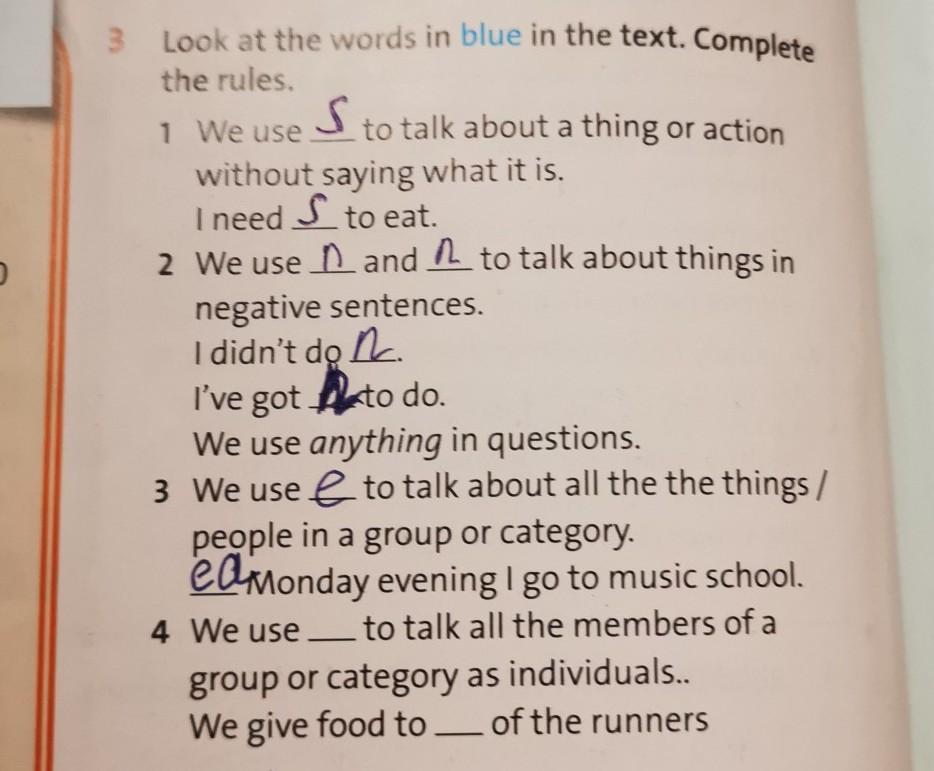 3 Look at the words in blue in the text. Complete
the rules.
1 We use S to talk about a thing or action
without saying what it is.
I need S to eat.
2 We use n and n to talk about things in
negative sentences.
I didn't do n.
I've got n to do.
We use anything in questions.
3 We use e to talk about all the the things /
people in a group or category.
ea Monday evening I go to music school.
4 We use __ to talk all the members of a
group or category as individuals..
We give food to __ of the runners